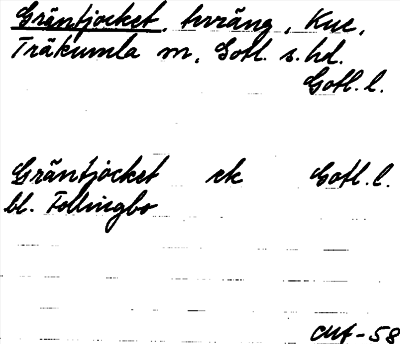 Gräntjocket, tvräng, Kue,
Träkumla sn, Gotl. s. hd.
Gotl. l.
Gräntjocket ek Gotl. l.
bl. Follingbo
CMf-58